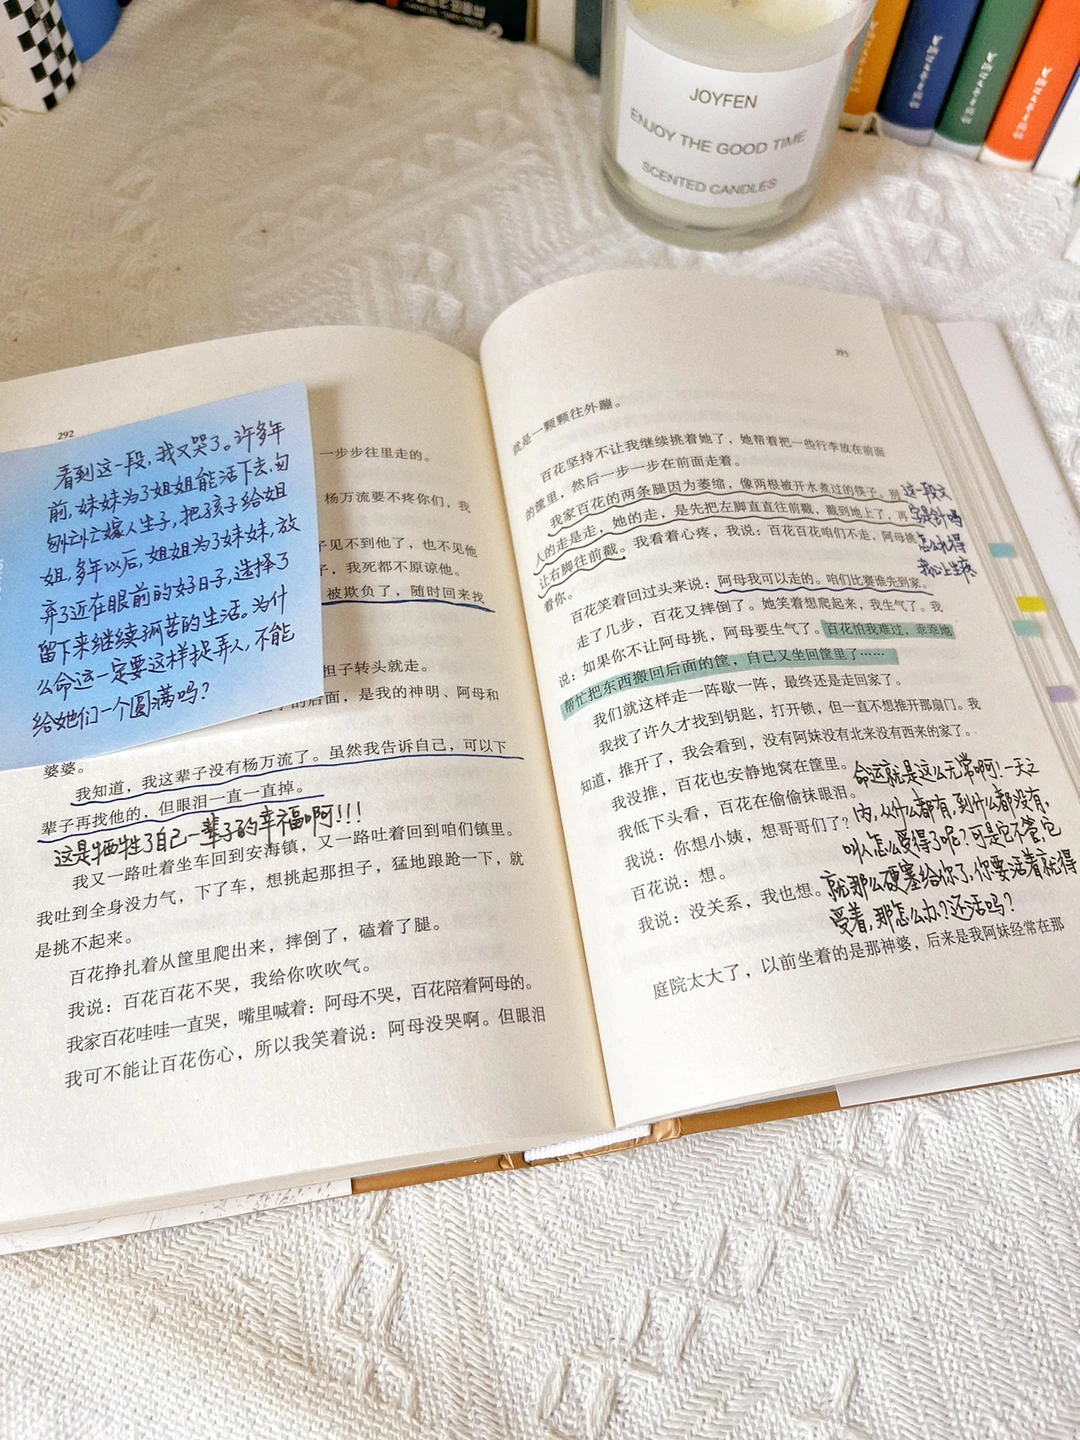 JOYFEN
ENJOY THE GOOD TIME
SCENTED CANDLES
292
看到这一段,我又哭了。许多年
前,妹妹为了姐姐能活下去,匆
匆忙忙嫁人生子,把孩子给姐
姐,多年以后,姐姐为了妹妹,放
弃了近在眼前的好日子,选择了
留下来继续孤苦的生活。为什
么命运一定要这样捉弄人,不能
给她们一个圆满吗?
一步步往里走的。
杨万流要不疼你们,我
子见不到他了,也不见他
子,我死都不原谅他。
被欺负了,随时回来找
担子转头就走。
的后面,是我的神明、阿母和
婆婆。
我知道,我这辈子没有杨万流了。虽然我告诉自己,可以下
辈子再找他的,但眼泪一直一直掉。
这是牺牲了自己一辈子的幸福啊!!!
我又一路吐着坐车回到安海镇,又一路吐着回到咱们镇里。
我吐到全身没力气,下了车,想挑起那担子,猛地踉跄一下,就
是挑不起来。
百花挣扎着从筐里爬出来,摔倒了,磕着了腿。
我说:百花百花不哭,我给你吹吹气。
我家百花哇哇一直哭,嘴里喊着:阿母不哭,百花陪着阿母的。
我可不能让百花伤心,所以我笑着说:阿母没哭啊。但眼泪
293
就是一颗颗往外蹦。
百花坚持不让我继续挑着她了,她帮着把一些行李放在前面
的筐里,然后一步一步在前面走着。
我家百花的两条腿因为萎缩,像两根被开水煮过的筷子。别
人的走是走,她的走,是先把左脚直直往前戳,戳到地上了,再
让右脚往前戳。我看着心疼,我说:百花百花咱们不走,阿母挑
着你。
这一段文
字是针吗
怎么扎得
我心上生疼
百花笑着回过头来说:阿母我可以走的。咱们比赛谁先到家。
走了几步,百花又摔倒了。她笑着想爬起来,我生气了。我
说:如果你不让阿母挑,阿母要生气了。百花怕我难过,乖乖地
帮忙把东西搬回后面的筐,自己又坐回筐里了……
我们就这样走一阵歇一阵,最终还是走回家了。
我找了许久才找到钥匙,打开锁,但一直不想推开那扇门。我
知道,推开了,我会看到,没有阿妹没有北来没有西来的家了。
我没推,百花也安静地窝在筐里。
我低下头看,百花在偷偷抹眼泪。
我说:你想小姨,想哥哥们了?
百花说:想。
我说:没关系,我也想。
命运就是这么无常啊!一天之
内,从什么都有,到什么都没有,
叫人怎么受得了呢?可是它不管,它
就那么硬塞给你了,你要活着就得
受着,那怎么办?还活吗?
庭院太大了,以前坐着的是那神婆,后来是我阿妹经常在那